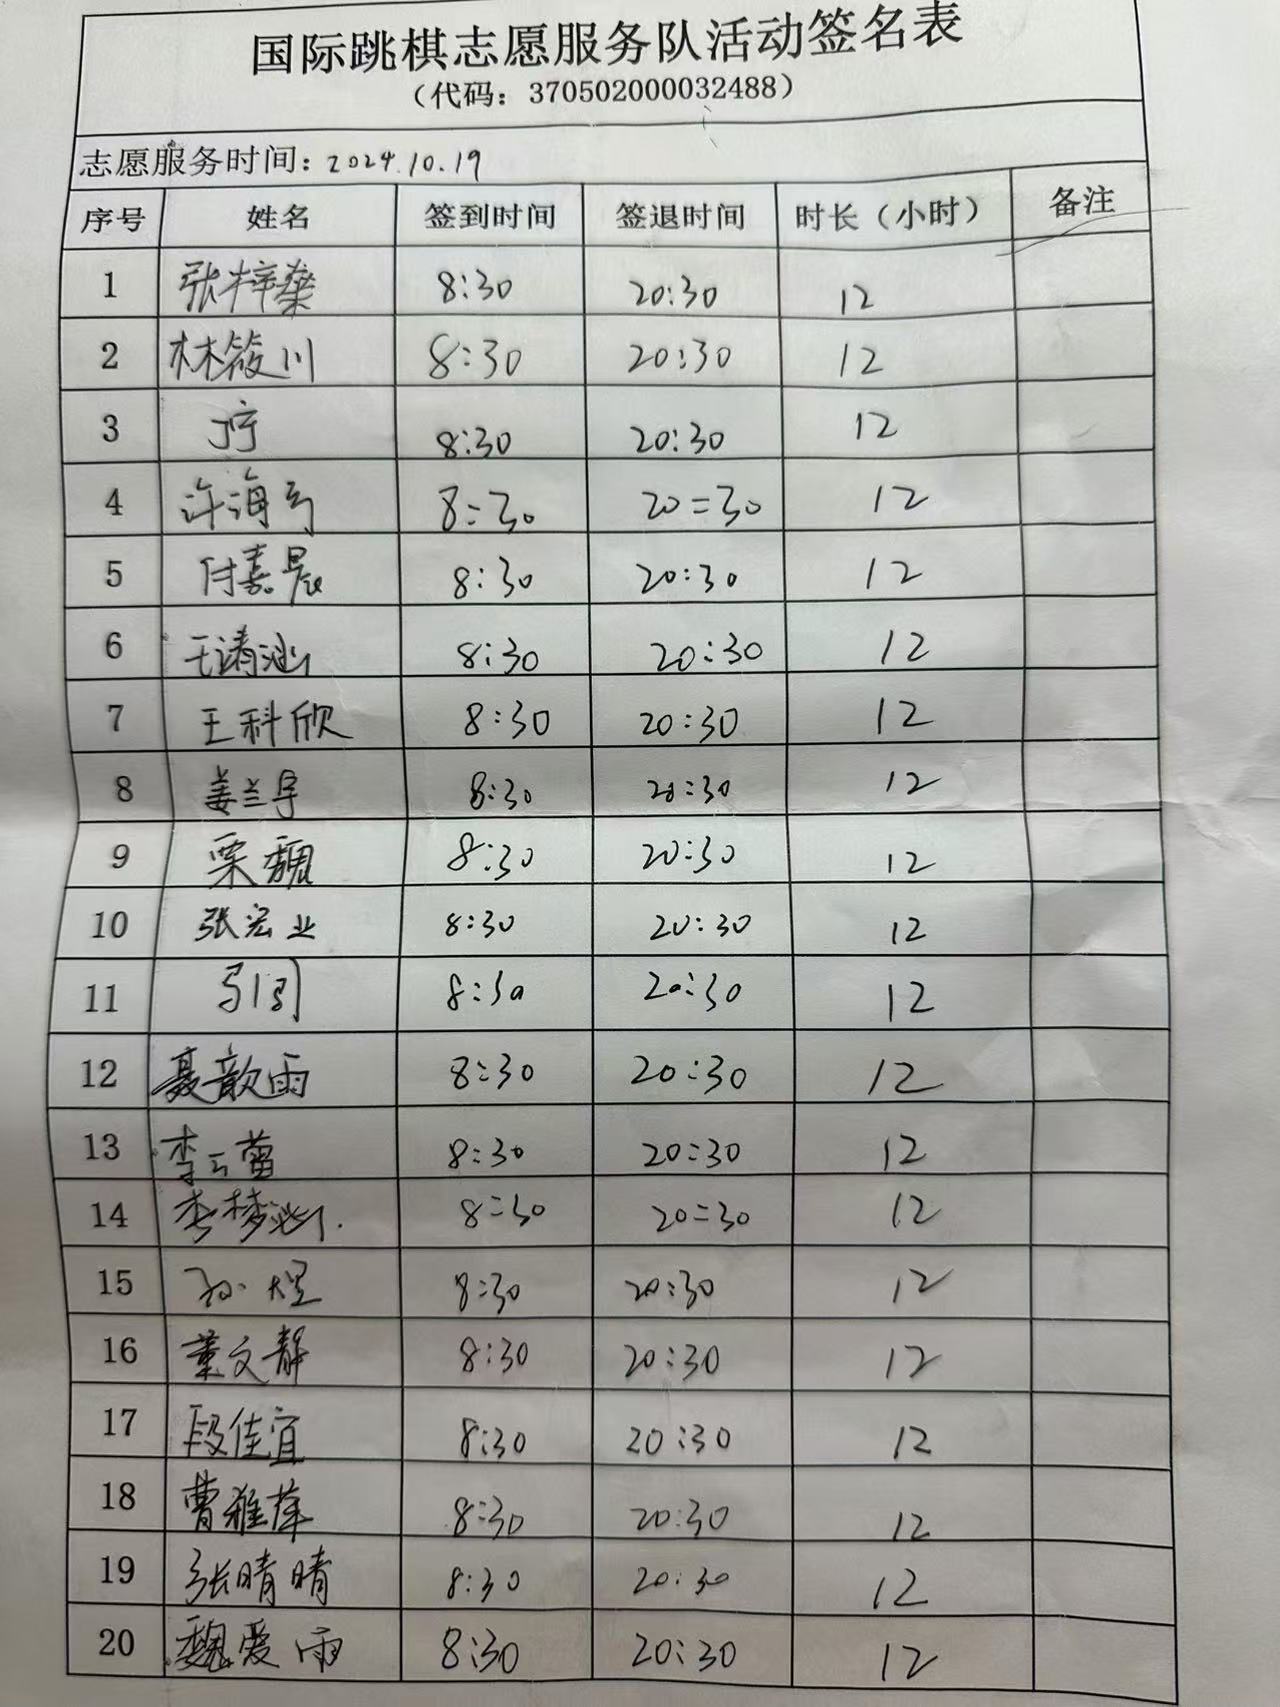 国际跳棋志愿服务队活动签名表
（代码：370502000032488）
志愿服务时间：2024.10.19
序号 姓名 签到时间 签退时间 时长（小时） 备注
1 张梓燊 8:30 20:30 12
2 林筱川 8:30 20:30 12
3 丁宁 8:30 20:30 12
4 许海 8:30 20:30 12
5 付嘉晨 8:30 20:30 12
6 王清涵 8:30 20:30 12
7 王科欣 8:30 20:30 12
8 姜兰宇 8:30 20:30 12
9 栗巍 8:30 20:30 12
10 张宏业 8:30 20:30 12
11 8:30 20:30 12
12 聂歆雨 8:30 20:30 12
13 李云蕾 8:30 20:30 12
14 李梦涵 8:30 20:30 12
15 孙煜 8:30 20:30 12
16 董文静 8:30 20:30 12
17 段佳宜 8:30 20:30 12
18 曹雅萍 8:30 20:30 12
19 张晴晴 8:30 20:30 12
20 魏爱雨 8:30 20:30 12